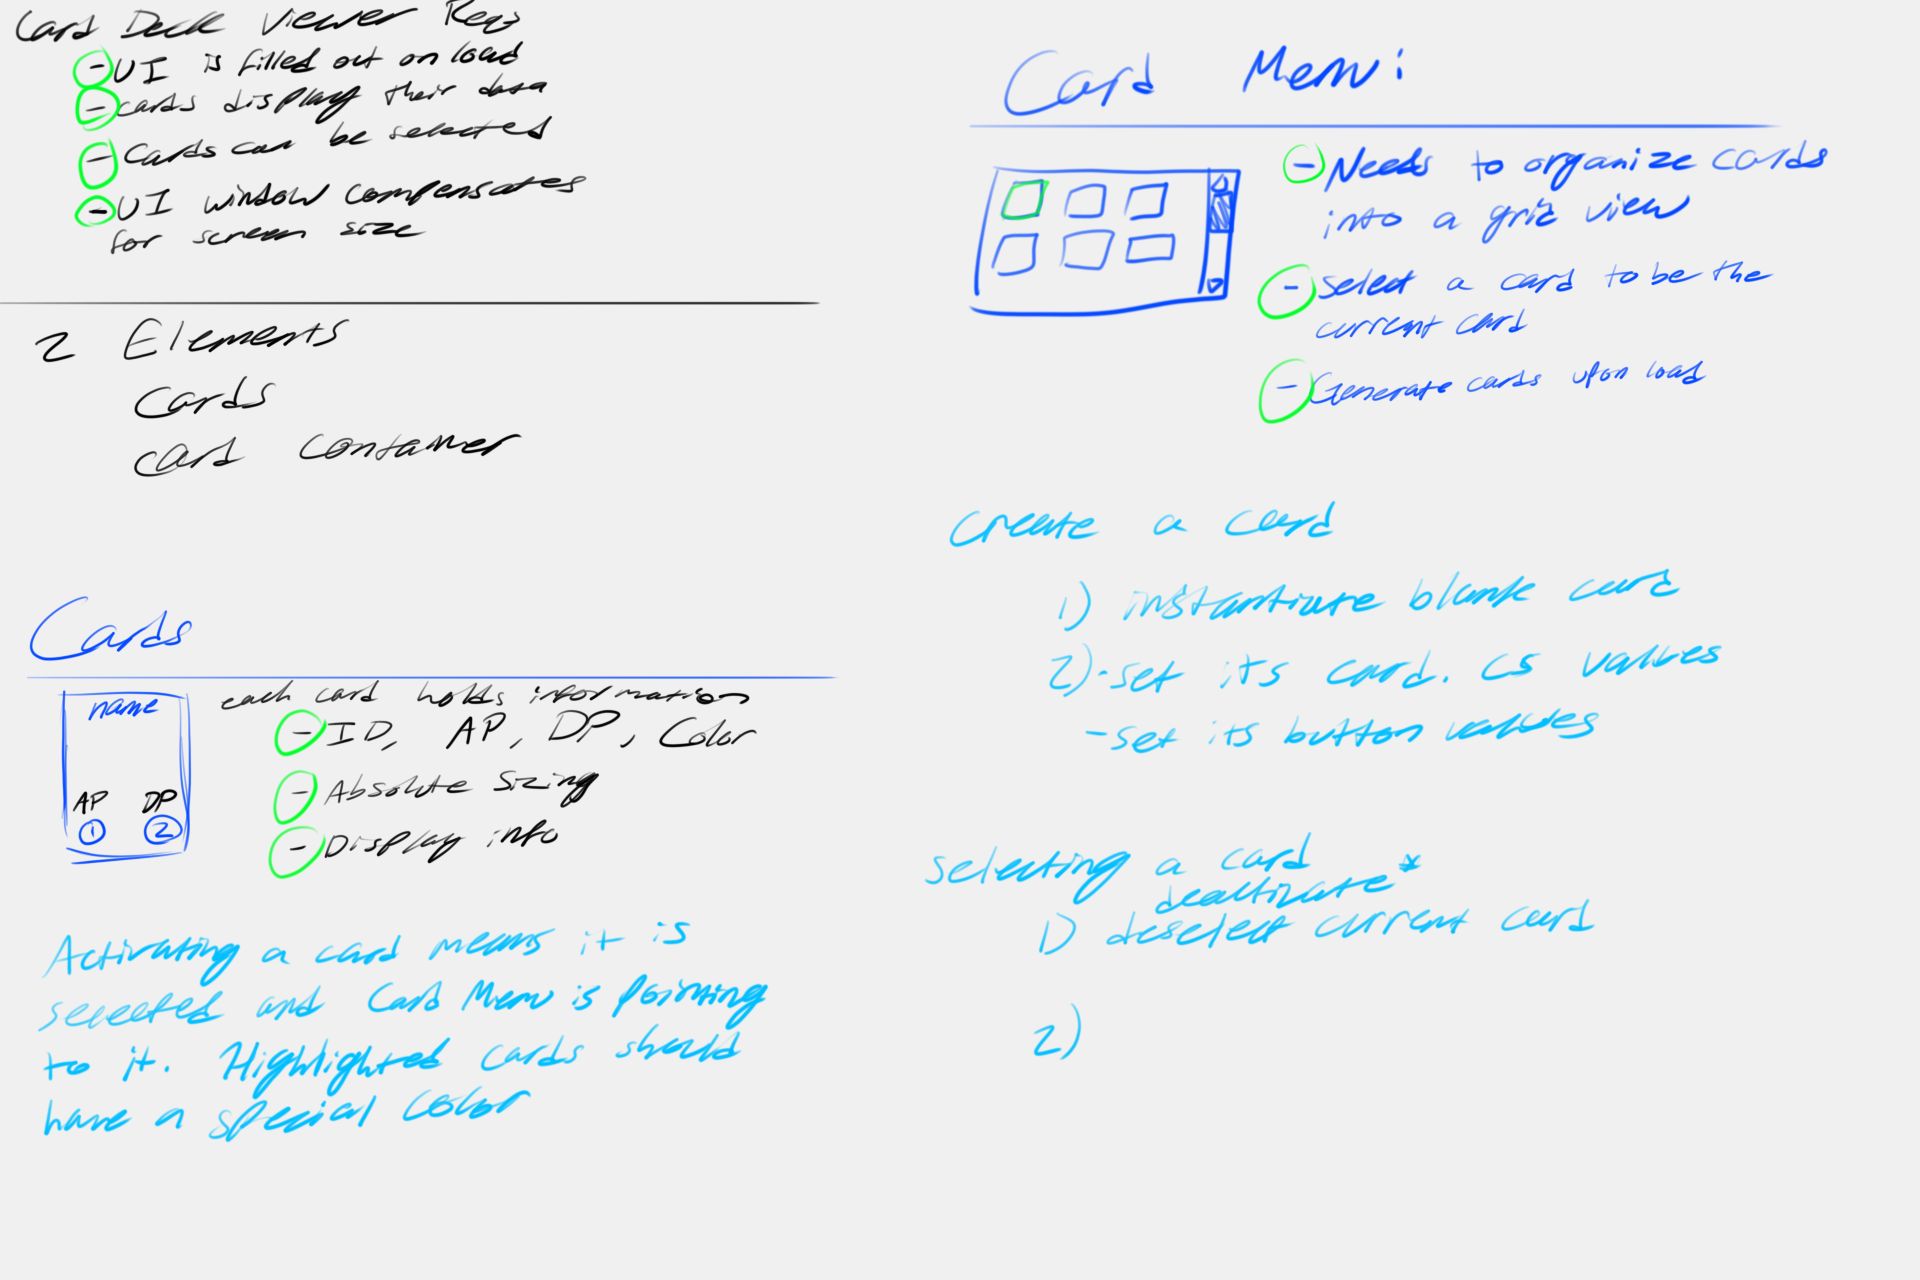 Card Deck Viewer Reqs
- UI is filled out on load
- cards display their data
- Cards can be selected
- UI window compensates
for screen size
2 Elements
Cards
card container
Cards
name
AP DP
1 2
each card holds information
- ID, AP, DP, Color
- Absolute sizing
- Display info
Activating a card means it is
selected and Card Menu is pointing
to it. Highlighted cards should
have a special color
Card Menu:
- Needs to organize cards
into a grid view
- select a card to be the
current card
- Generate cards upon load
Create a card
1) instantiate blank card
2) - set its card.cs values
- set its button values
selecting a card
deactivate*
1) deselect current card
2)